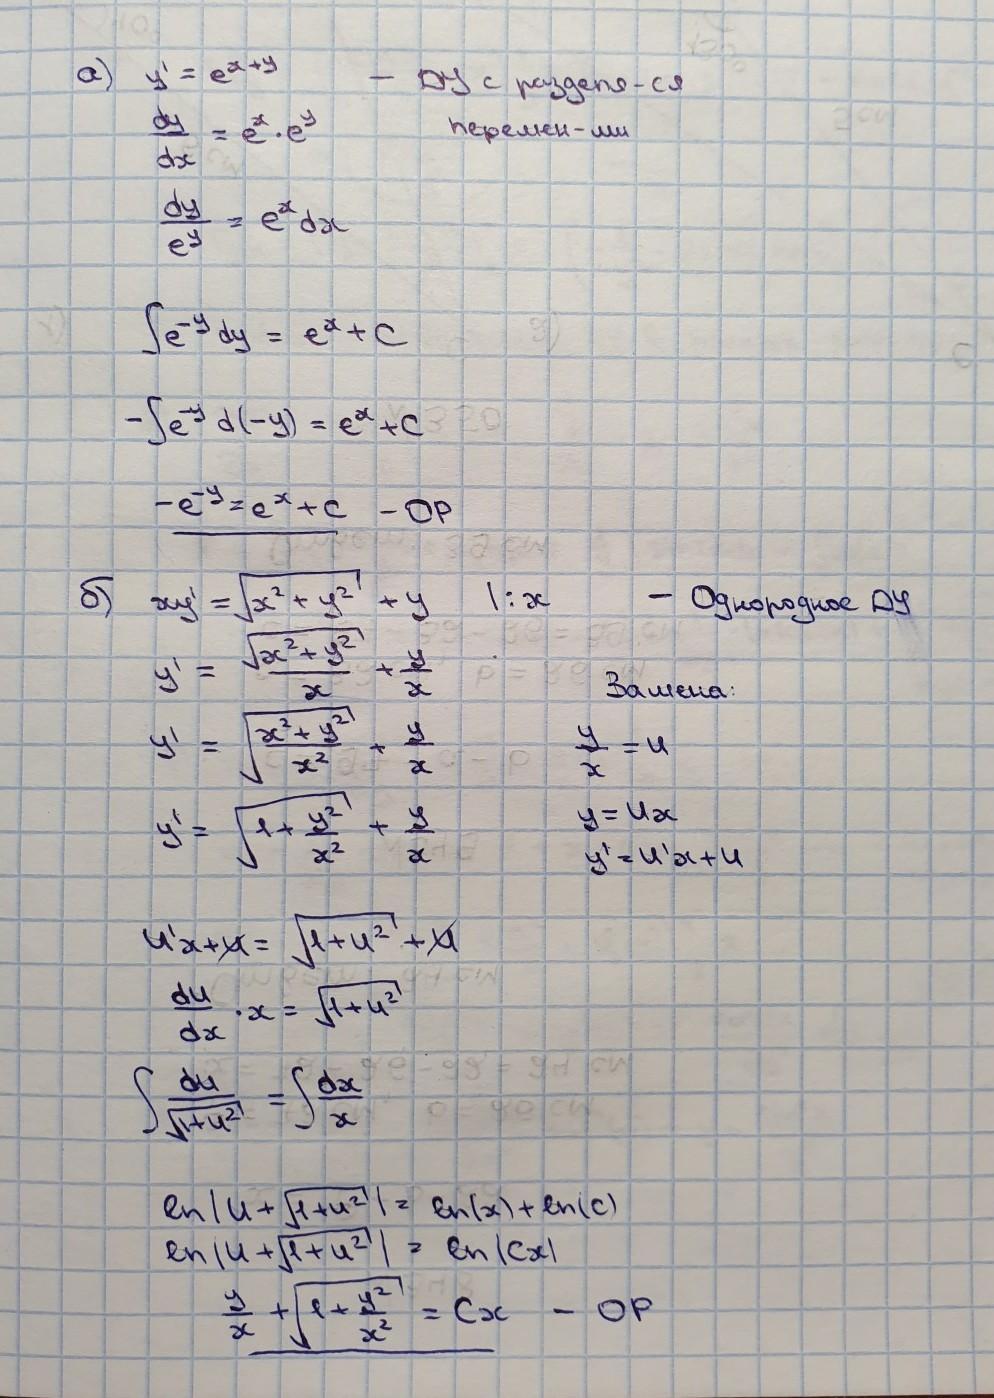 а) y' = e^{x+y} — ДУ с разделя-ся
dy/dx = e^x · e^y перемен-ми
dy/e^y = e^x dx
∫e^{-y} dy = e^x + C
-∫e^{-y} d(-y) = e^x + C
-e^{-y} = e^x + C – ОР
б) xy' = √(x² + y²) + y |: x — Однородное ДУ
y' = √(x² + y²)/x + y/x
Замена:
y' = √((x² + y²)/x²) + y/x y/x = u
y' = √(1 + y²/x²) + y/x y = ux
y' = u'x + u
u'x + u = √(1 + u²) + u
du/dx · x = √(1 + u²)
∫ du/√(1+u²) = ∫ dx/x
ln|u + √(1+u²)| = ln(x) + ln(c)
ln|u + √(1+u²)| = ln|Cx|
y/x + √(1 + y²/x²) = Cx – ОР